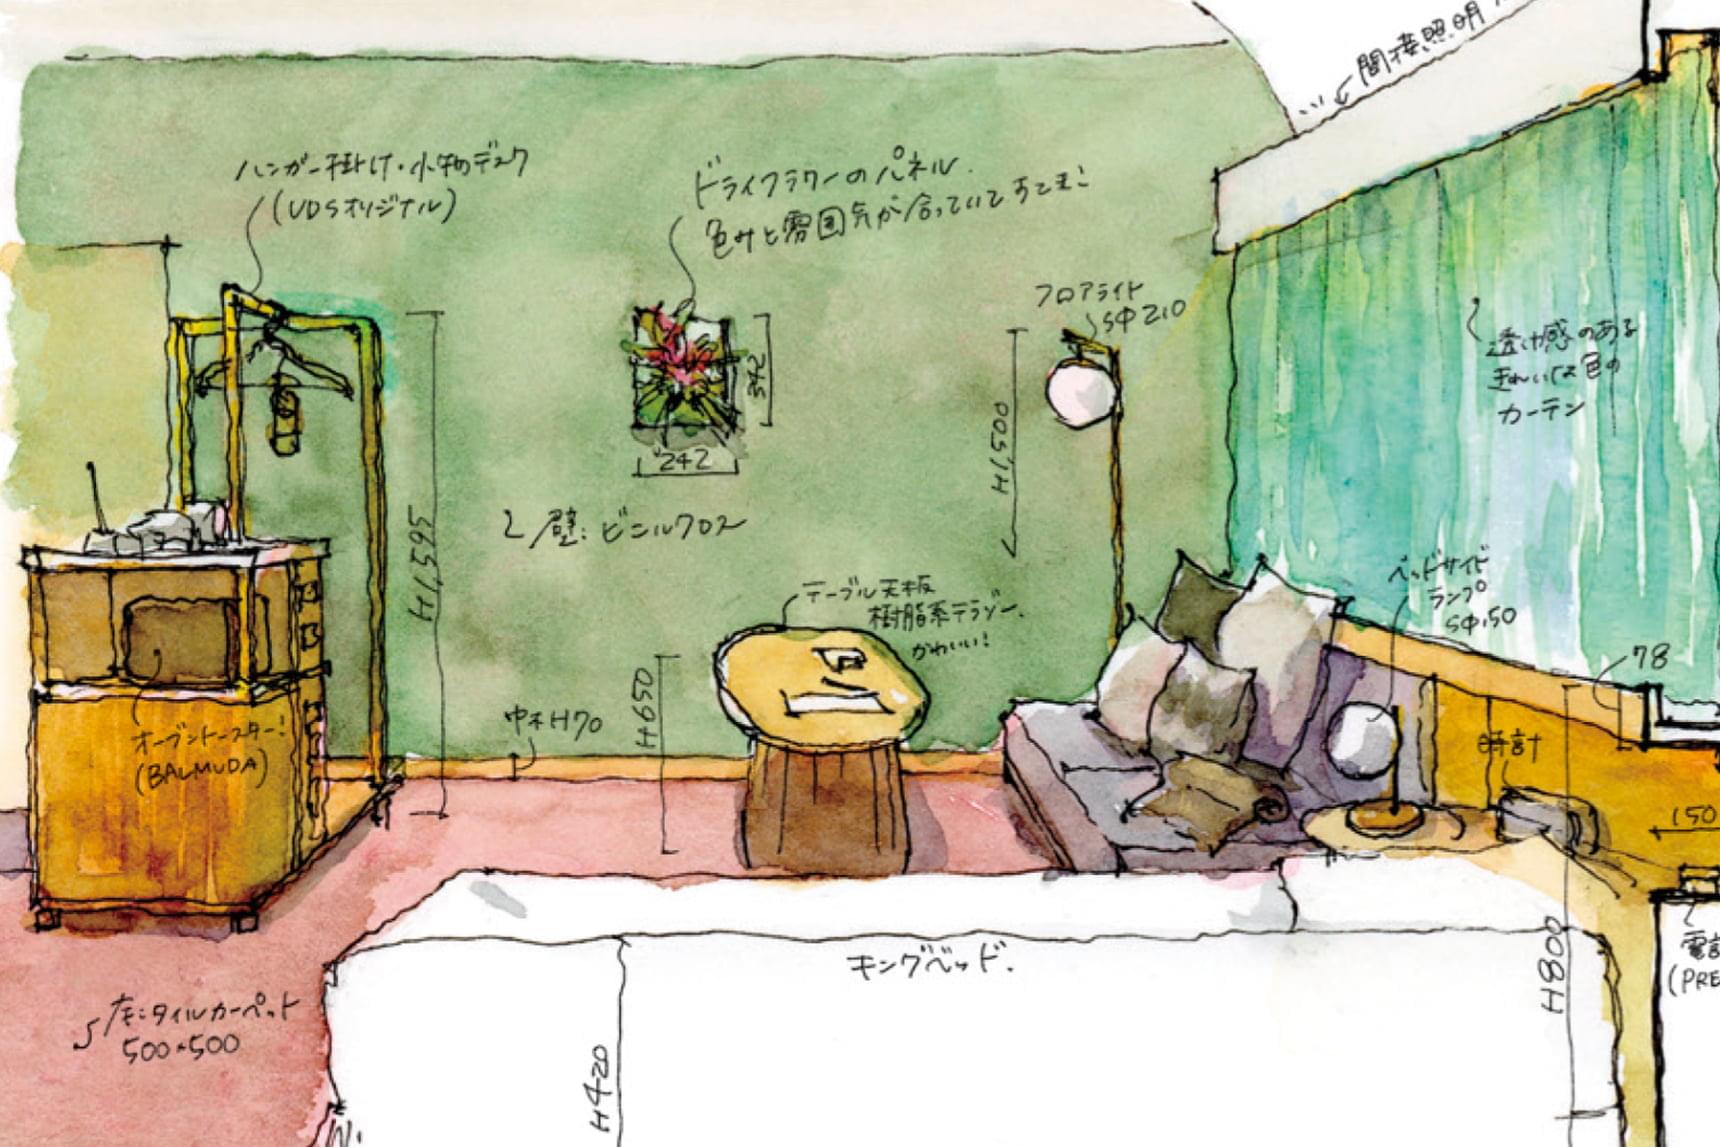 間接照明
ハンガー掛け・小物デスク
(UDSオリジナル)
ドライフラワーのパネル.
色みと雰囲気が合っていてすてき!
フロアライト
Sφ210
H1,500
342
242
透け感のある
きれいな色の
カーテン
H1,595
壁:ビニルクロス
テーブル天板
樹脂系テラゾー.
かわいい!
ベッドサイド
ランプ
Sφ150
78
H650
巾木H70
オーブントースター!
(BALMUDA)
時計
150
キングベッド.
H800
電話
(PRE
床:タイルカーペット
500×500
H420